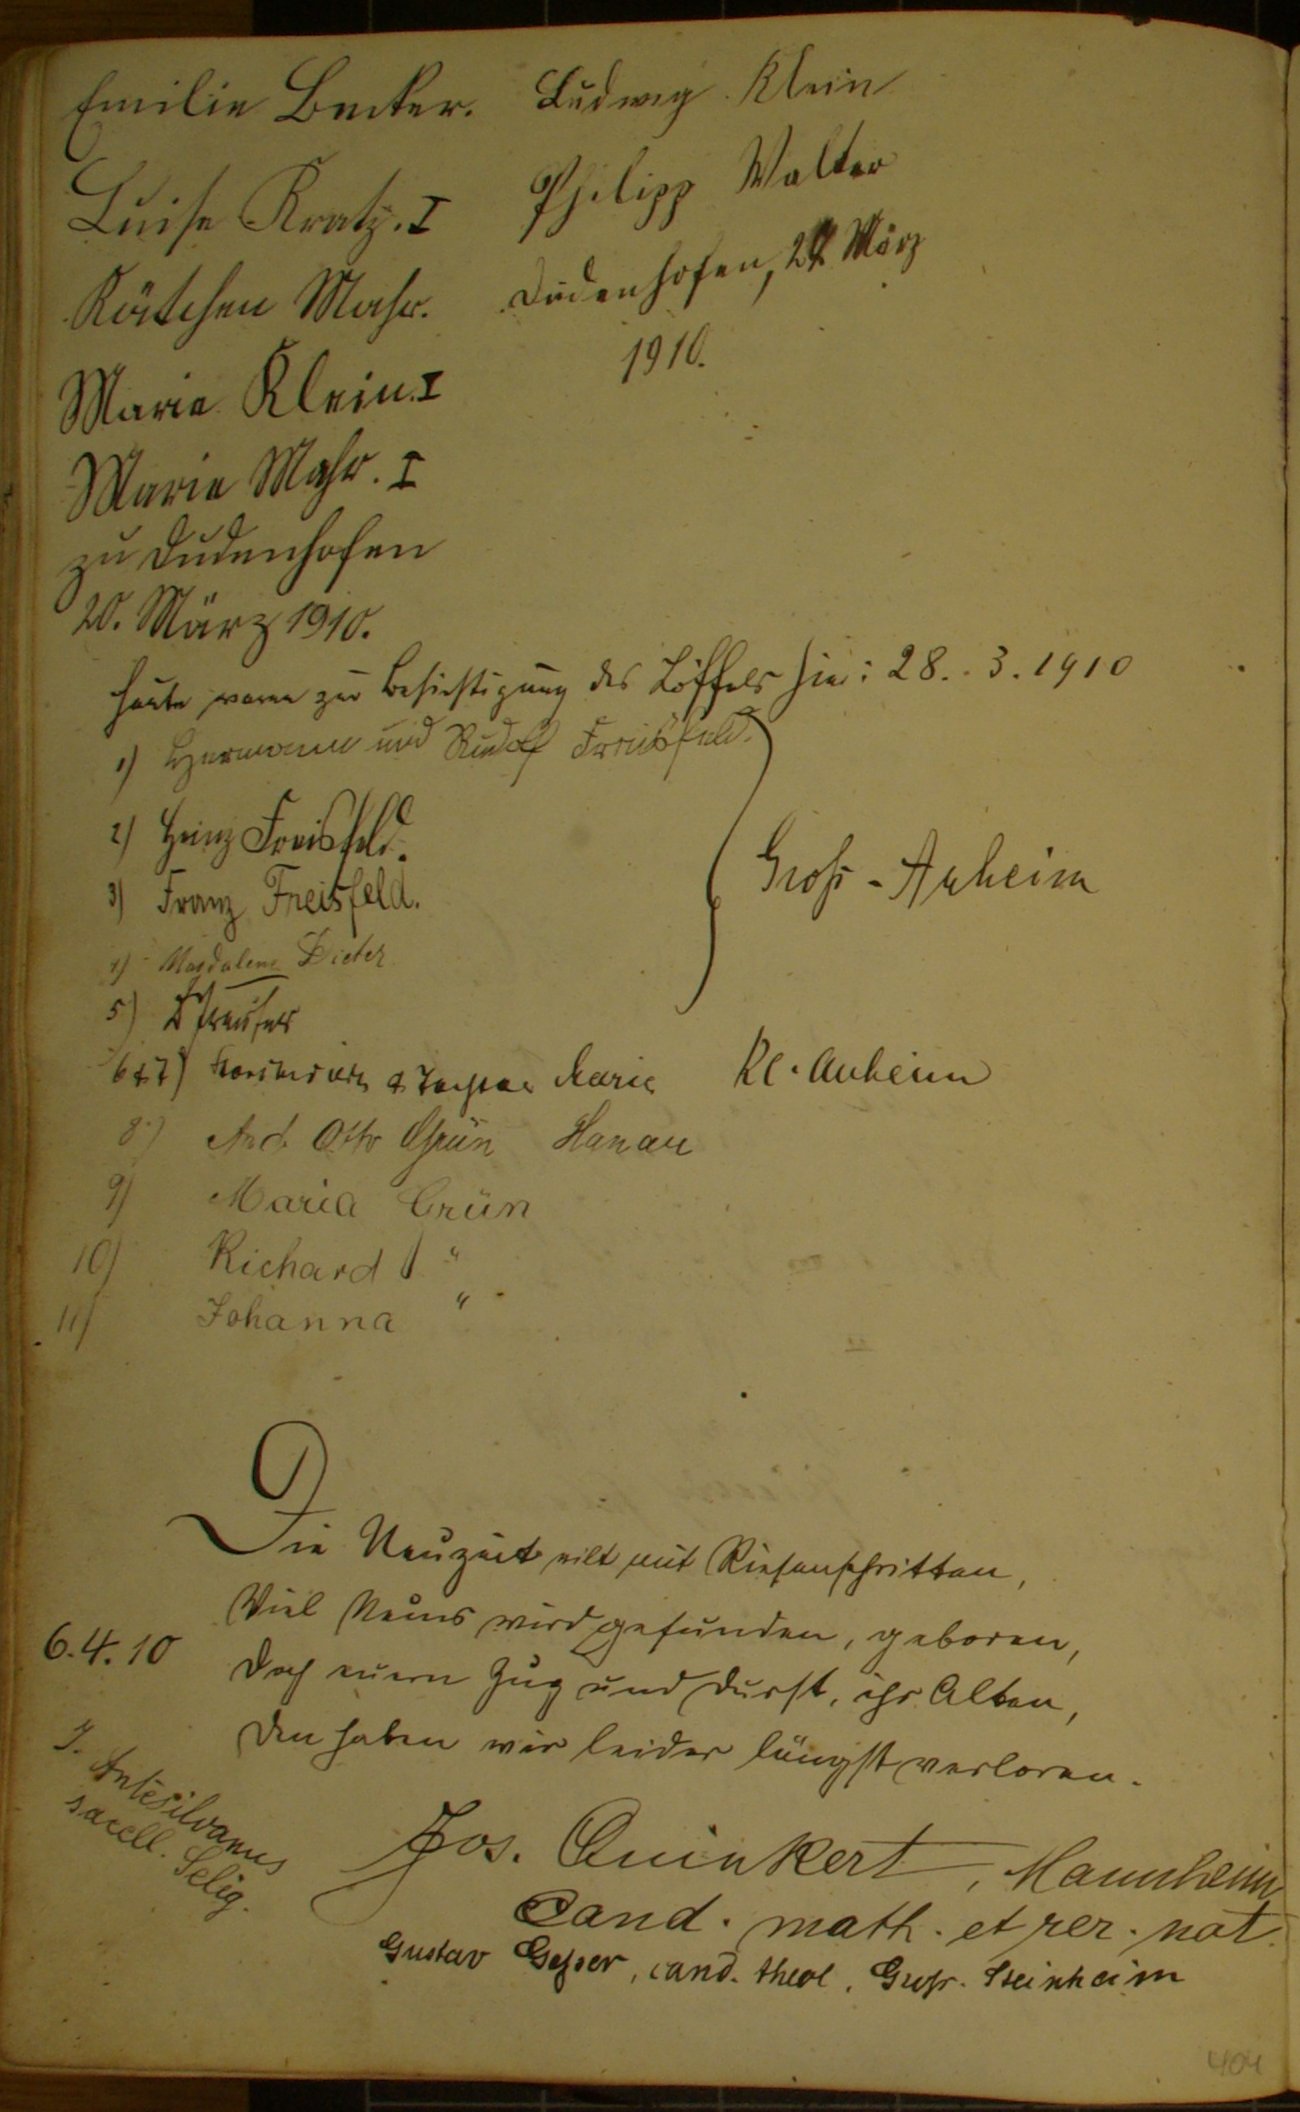 Emilie Becker.
Luise Kratz. I
Kätchen Mahr.
Marie Klein. I
Marie Mahr. I
zu Dudenhofen
20. März 1910.
Ludwig Klein
Philipp Walter
Dudenhofen, März
1910.
Heute waren zur Besichtigung des Löffels hier: 28. 3. 1910
1) Hermann und Rudolf Freisfeld.
2) Heinz Freisfeld.
3) Franz Freisfeld.
4) Magdalene Dieter
5)
Groß-Auheim
6 & 7) Marie Kl. Auheim
8) And. Otto Grün Hanau
9) Maria Grün
10) Richard "
11) Johanna "
Die Neuzeit eilt mit Riesenschritten,
Viel Neues wird gefunden, geboren,
Doch euern Zug und Durst, ihr Alten,
Den haben wir leider längst verloren.
6.4.10
J. Antesilvanus
sacell. Selig.
Jos. Quinkert, Mannheim,
Cand. math. et rer. nat.
Gustav cand. theol. Groß-Steinheim
404